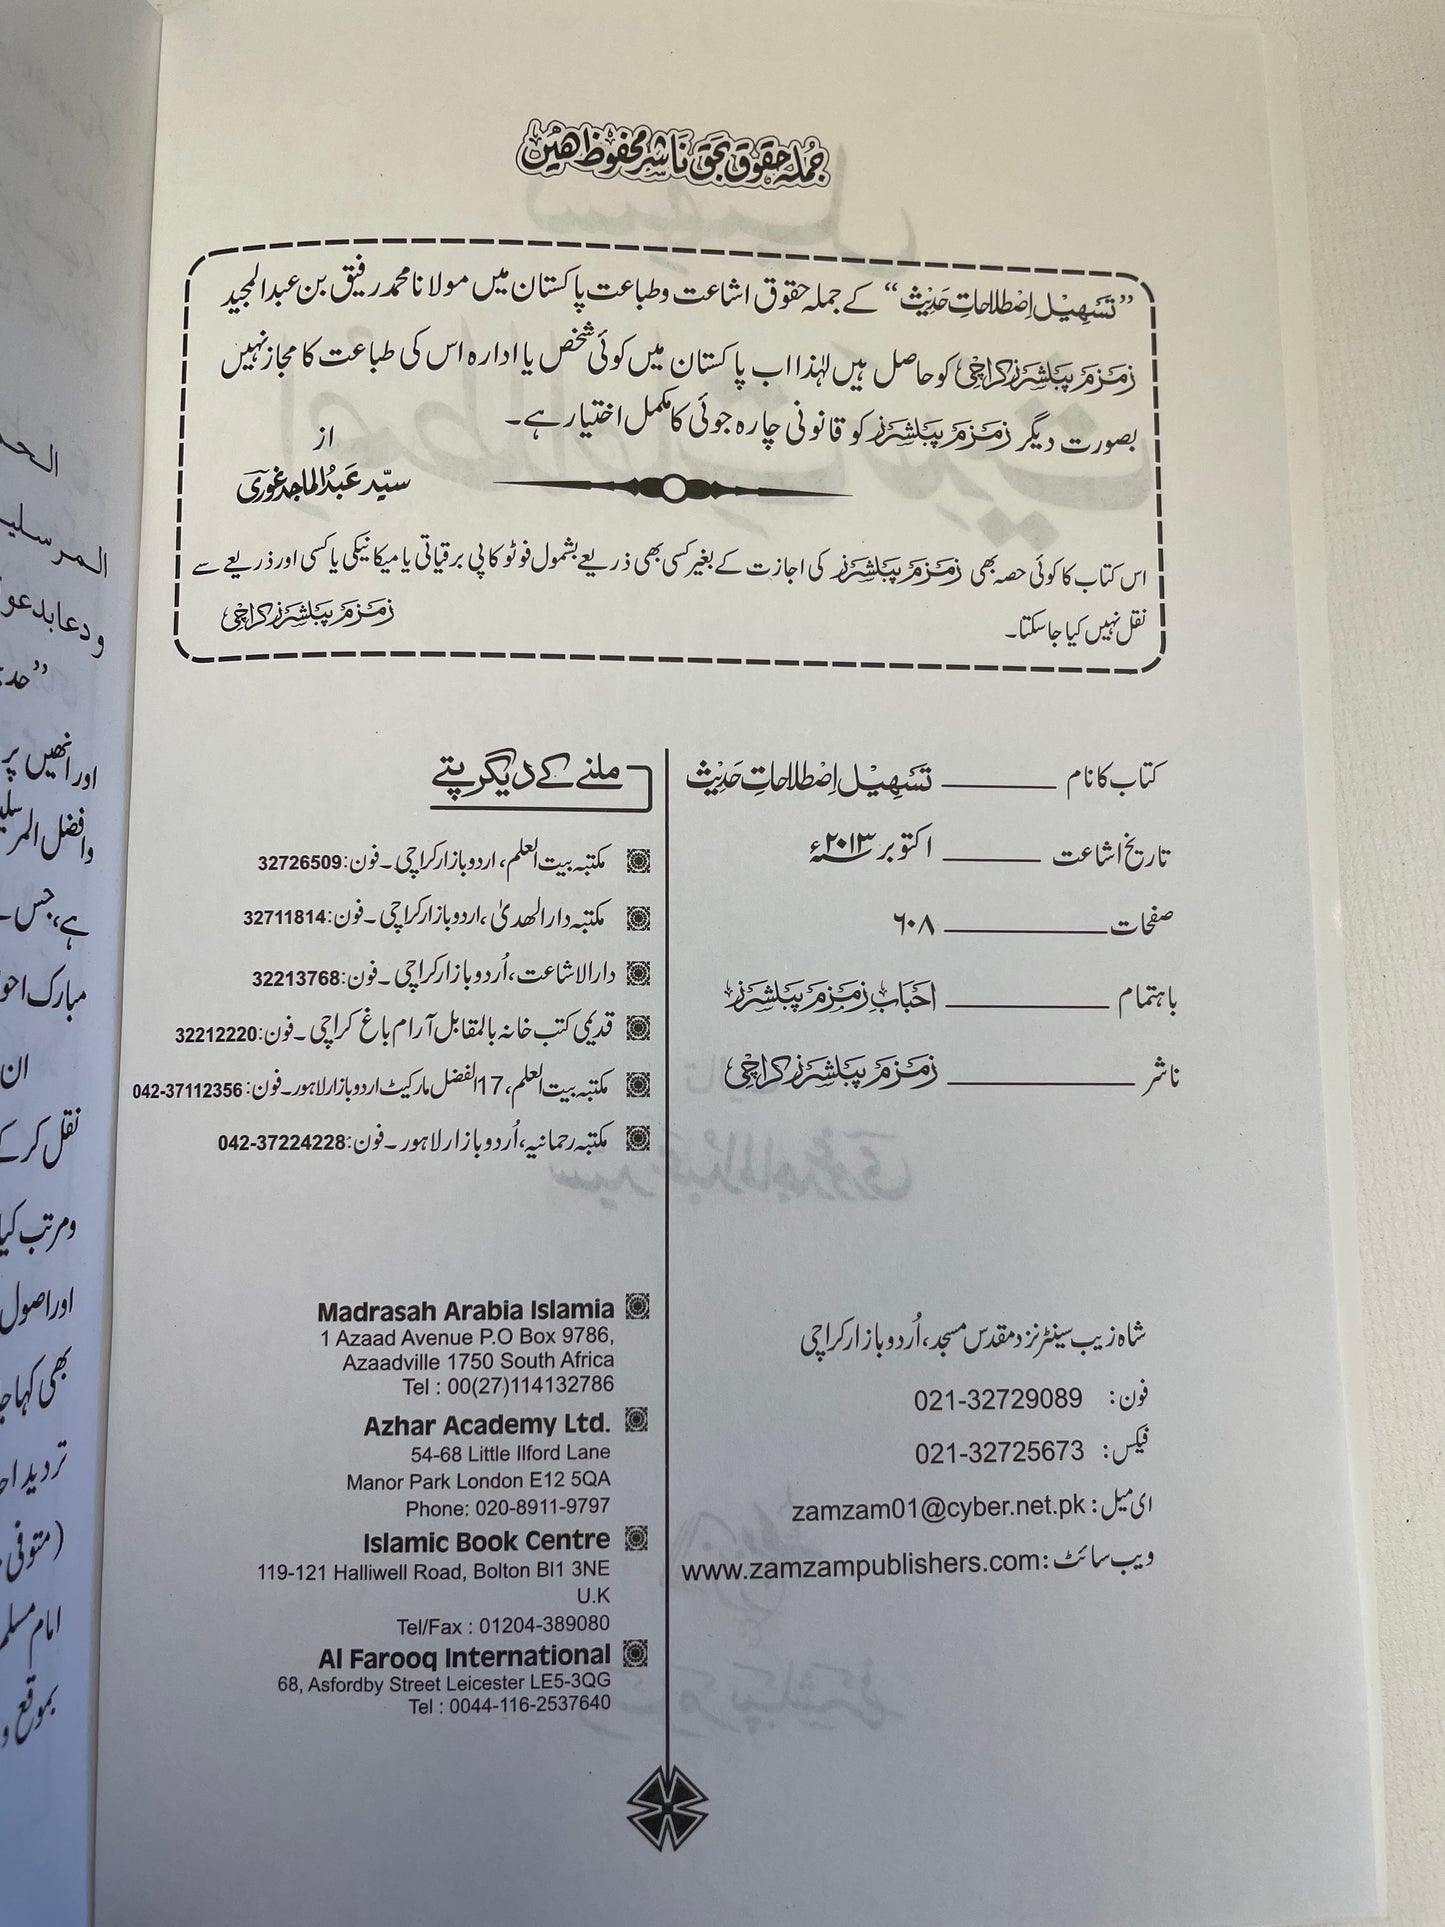 جملہ حقوق بحق ناشر محفوظ ھیں
”تسہیل اصطلاحاتِ حدیث“ کے جملہ حقوق اشاعت و طباعت پاکستان میں مولانا محمد رفیق بن عبدالمجید
زمزم پبلشرز کراچی کو حاصل ہیں لہٰذا اب پاکستان میں کوئی شخص یا ادارہ اس کی طباعت کا مجاز نہیں
بصورت دیگر زمزم پبلشرز کو قانونی چارہ جوئی کا مکمل اختیار ہے۔
از
سیّد عبدالماجد غوری
اس کتاب کا کوئی حصہ بھی زمزم پبلشرز کی اجازت کے بغیر کسی بھی ذریعے بشمول فوٹو کاپی برقیاتی یا میکانیکی یا کسی اور ذریعے سے
نقل نہیں کیا جاسکتا۔
زمزم پبلشرز کراچی
کتاب کا نام ــــــــ تسہیل اصطلاحاتِ حدیث
تاریخ اشاعت ــــــــ اکتوبر ۲۰۱۳ء
صفحات ــــــــ ۶۰۸
باہتمام ــــــــ احباب زمزم پبلشرز
ناشر ــــــــ زمزم پبلشرز کراچی
شاہ زیب سینٹر نزد مقدس مسجد، اُردو بازار کراچی
فون: 021-32729089
فیکس: 021-32725673
ای میل: zamzam01@cyber.net.pk
ویب سائٹ: www.zamzampublishers.com
ملنے کے دیگر پتے
مکتبہ بیت العلم، اردو بازار کراچی۔ فون: 32726509
مکتبہ دارالھدیٰ، اردو بازار کراچی۔ فون: 32711814
دارالاشاعت، اُردو بازار کراچی۔ فون: 32213768
قدیمی کتب خانہ بالمقابل آرام باغ کراچی۔ فون: 32212220
مکتبہ بیت العلم، 17 الفضل مارکیٹ اردو بازار لاہور۔ فون: 042-37112356
مکتبہ رحمانیہ، اُردو بازار لاہور۔ فون: 042-37224228
Madrasah Arabia Islamia
1 Azaad Avenue P.O Box 9786,
Azaadville 1750 South Africa
Tel : 00(27)114132786
Azhar Academy Ltd.
54-68 Little Ilford Lane
Manor Park London E12 5QA
Phone: 020-8911-9797
Islamic Book Centre
119-121 Halliwell Road, Bolton Bl1 3NE
U.K
Tel/Fax : 01204-389080
Al Farooq International
68, Asfordby Street Leicester LE5-3QG
Tel : 0044-116-2537640
المرسلیـ
اور انھیں پر
ہے، جس
ان
نقل کر کے
ومرتب کیا
اور اصول
(متوفی
بموقع و